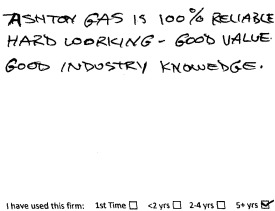 ASHTON GAS IS 100% RELIABLE
HARD WORKING - GOOD VALUE.
GOOD INDUSTRY KNOWEDGE.
I have used this firm: 1st Time ☐ <2 yrs ☐ 2-4 yrs ☐ 5+ yrs ☑